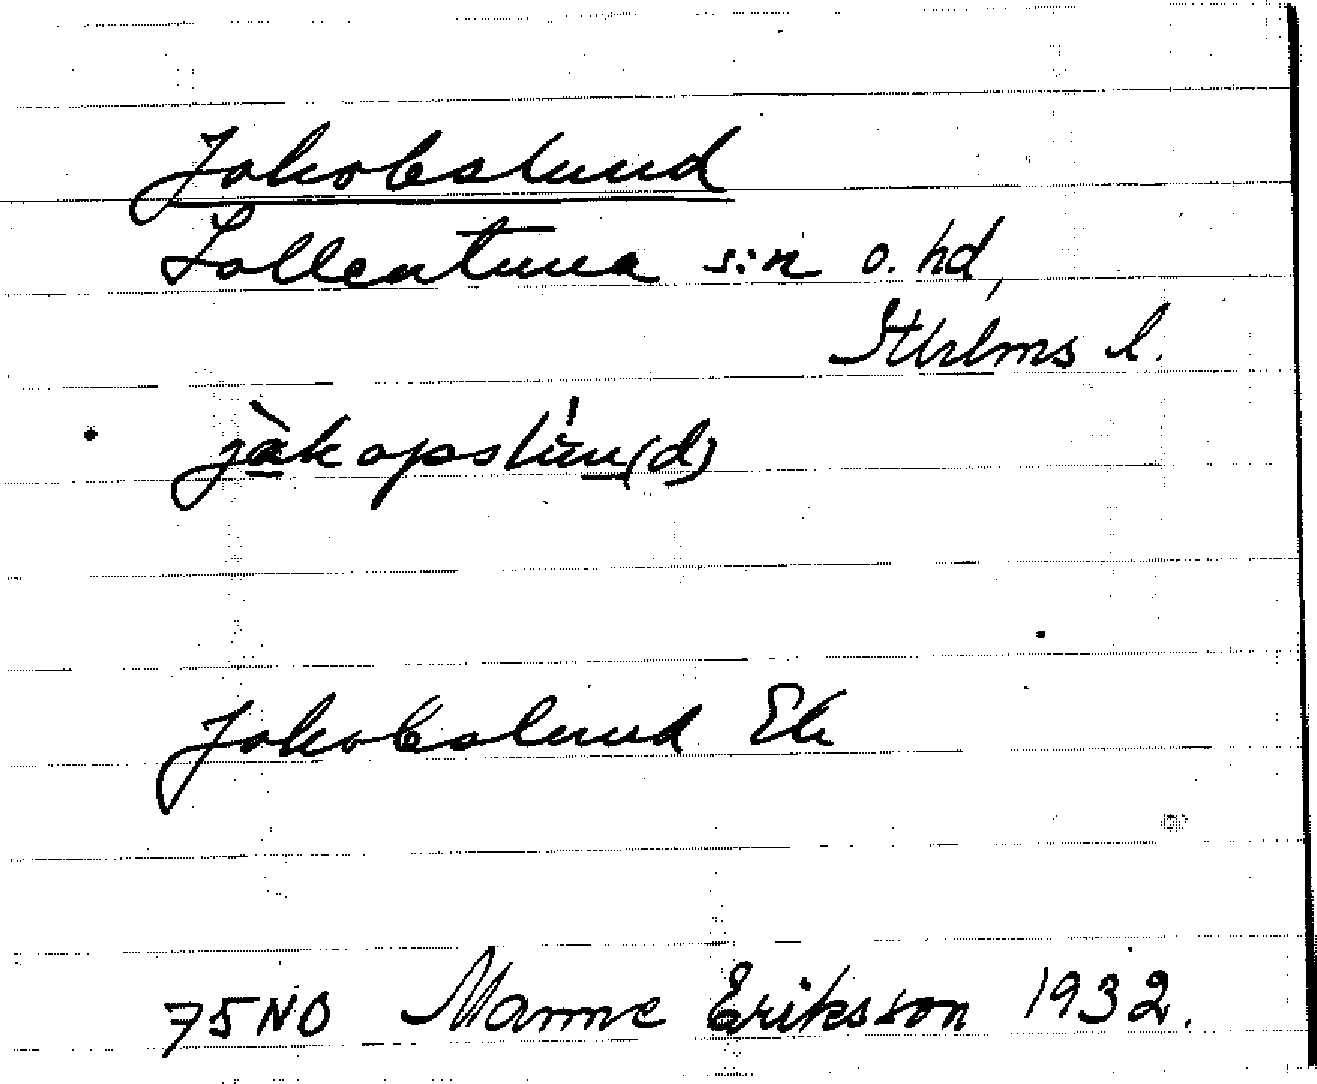 Jakobslund
Sollentuna s:n o. hd,
Sthlms l.
jàkopslún(d)
Jakobslund Ek
75NO Manne Eriksson 1932.